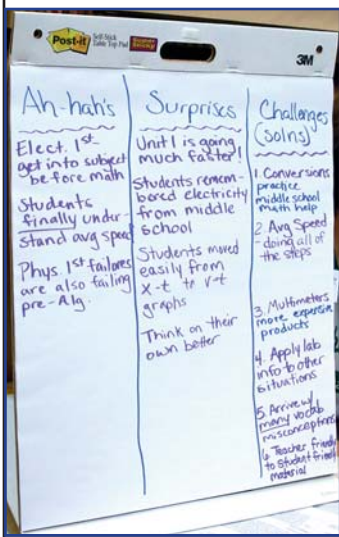 Post-it
Self-Stick
Table Top Pad
Super
Sticky
3M
Ah-hah's
Elect. 1st -
get into subject
before math
Students
finally under-
stand avg speed
Phys. 1st failures
are also failing
pre-Alg.
Surprises
Unit 1 is going
much faster!
Students remem-
bered electricity
from middle
school
Students moved
easily from
x-t to v-t
graphs
Think on their
own better
Challenges
(solns)
1. Conversions
practice
middle school
math help
2. Avg Speed
- doing all of
the steps
3. Multimeters
more expensive
products
4. Apply lab
info to other
situations
5. Arrive w/
many vocab
misconceptions
6. Teacher friendly
to student friendly
material